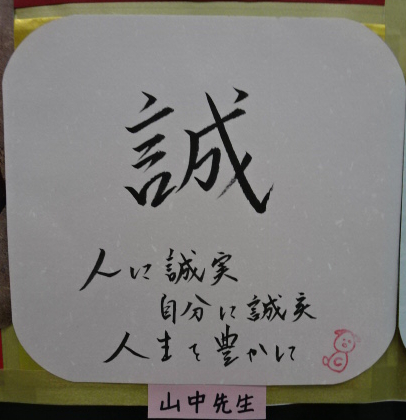 誠
人に誠実
自分に誠実
人生を豊かに
山中先生